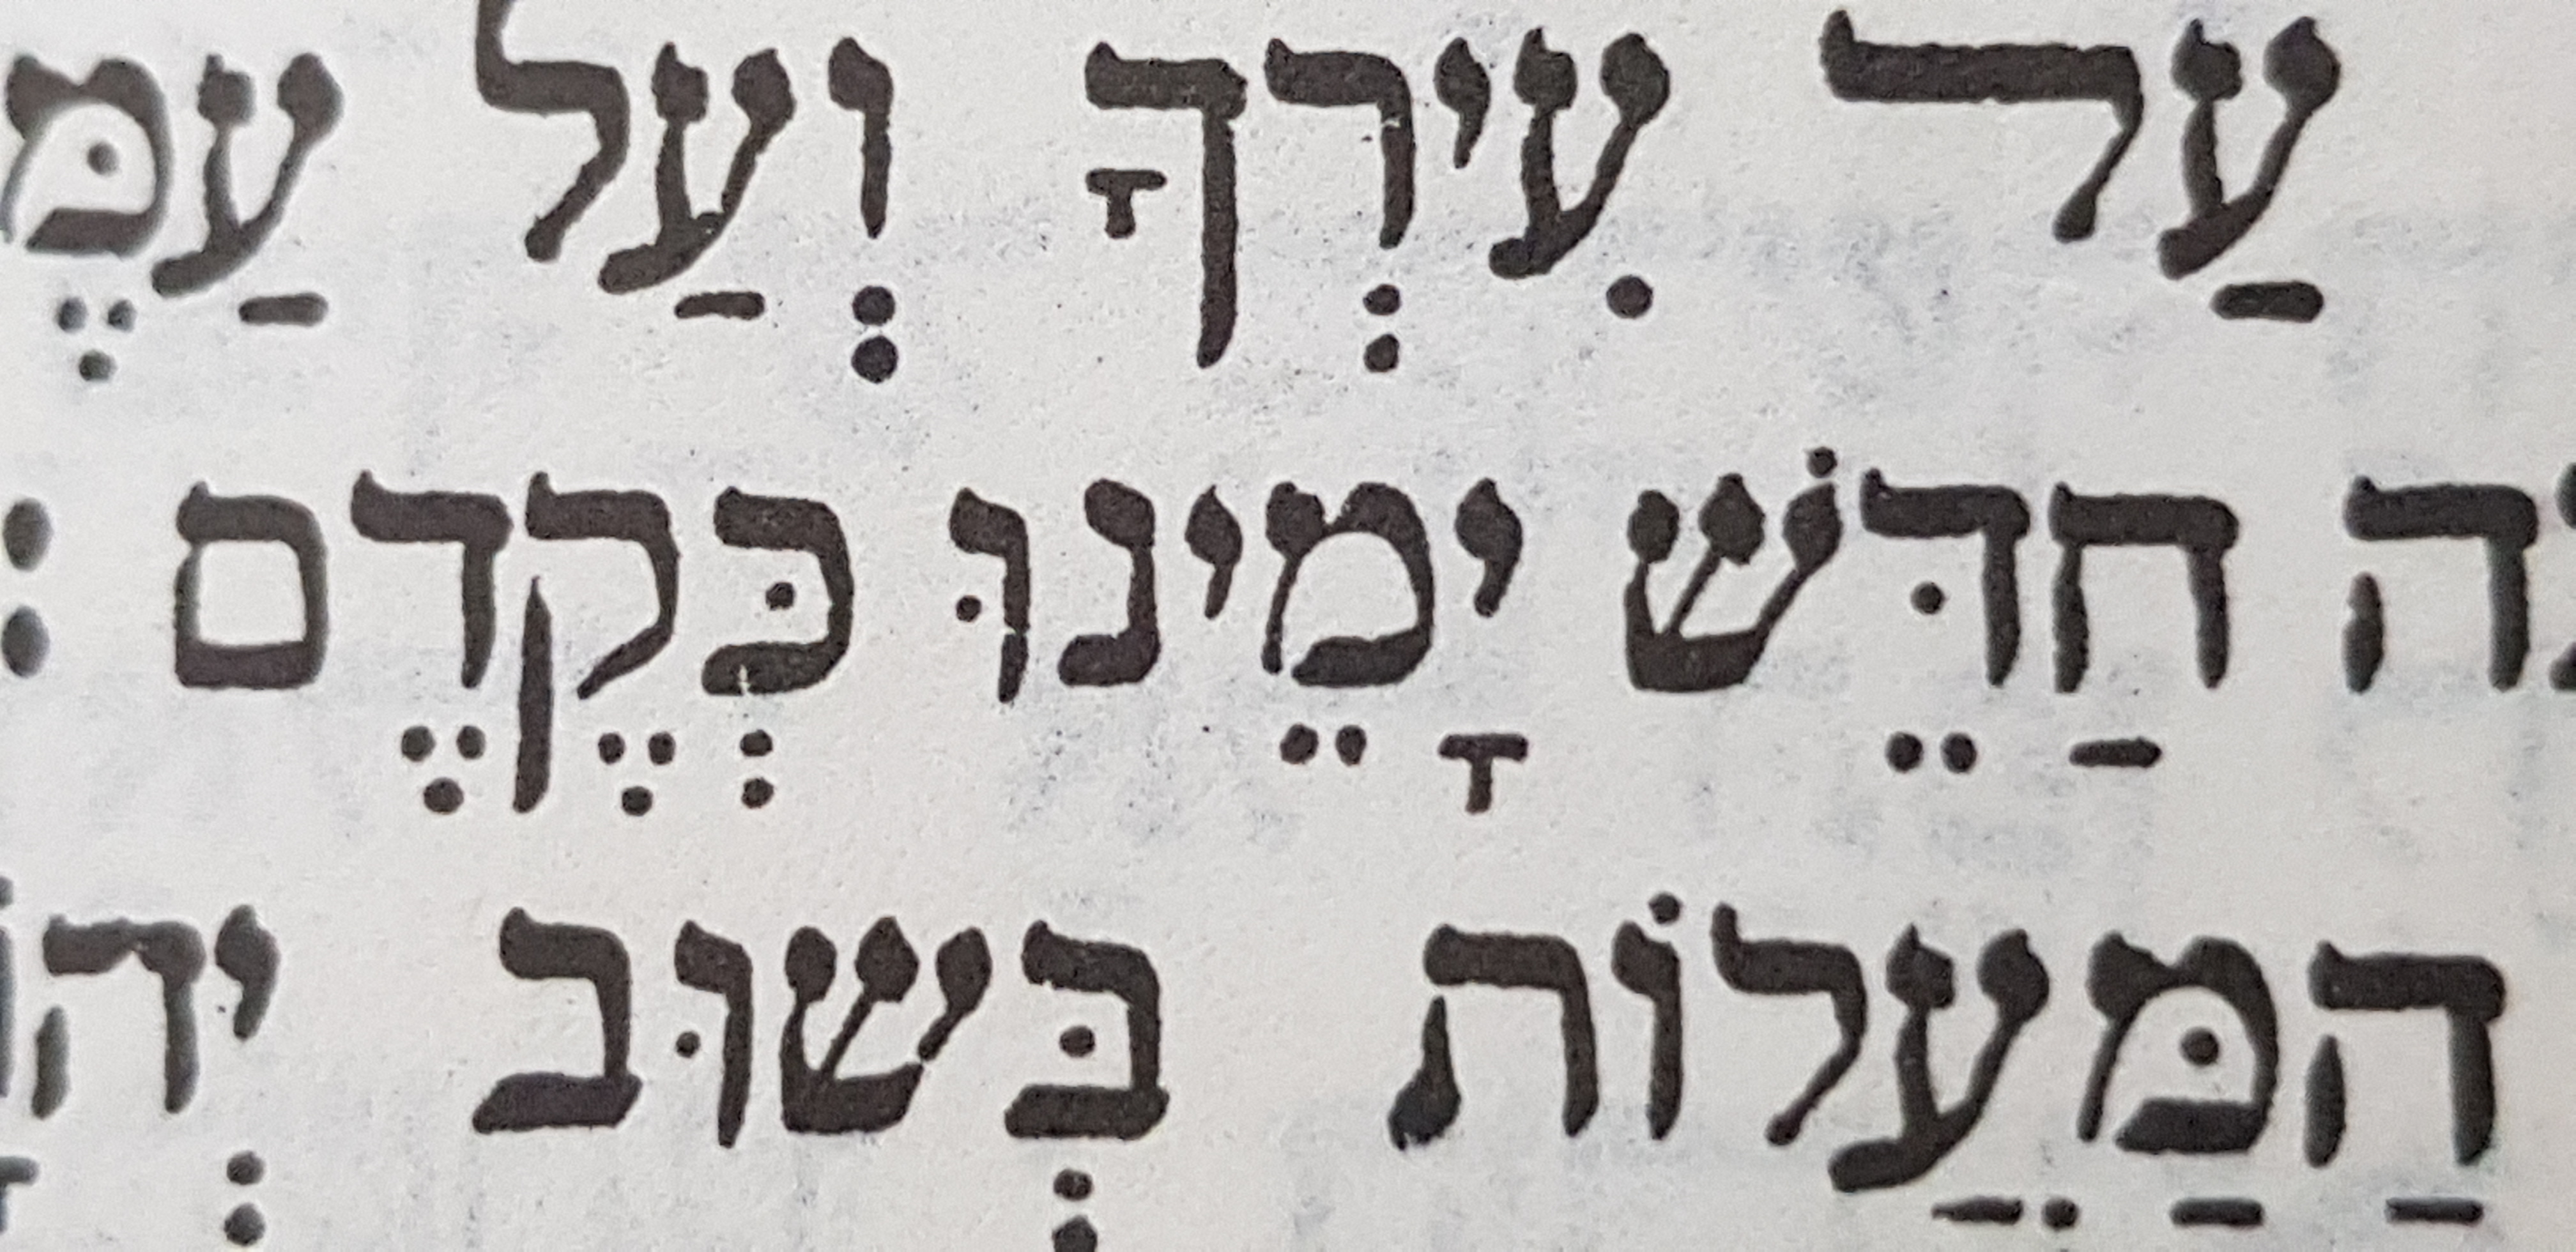 עַל עִירְךָ וְעַל עַמֶּ
ה חַדֵּשׁ יָמֵינוּ כְּקֶדֶם :
הַמַּעֲלוֹת בְּשוּב יְה